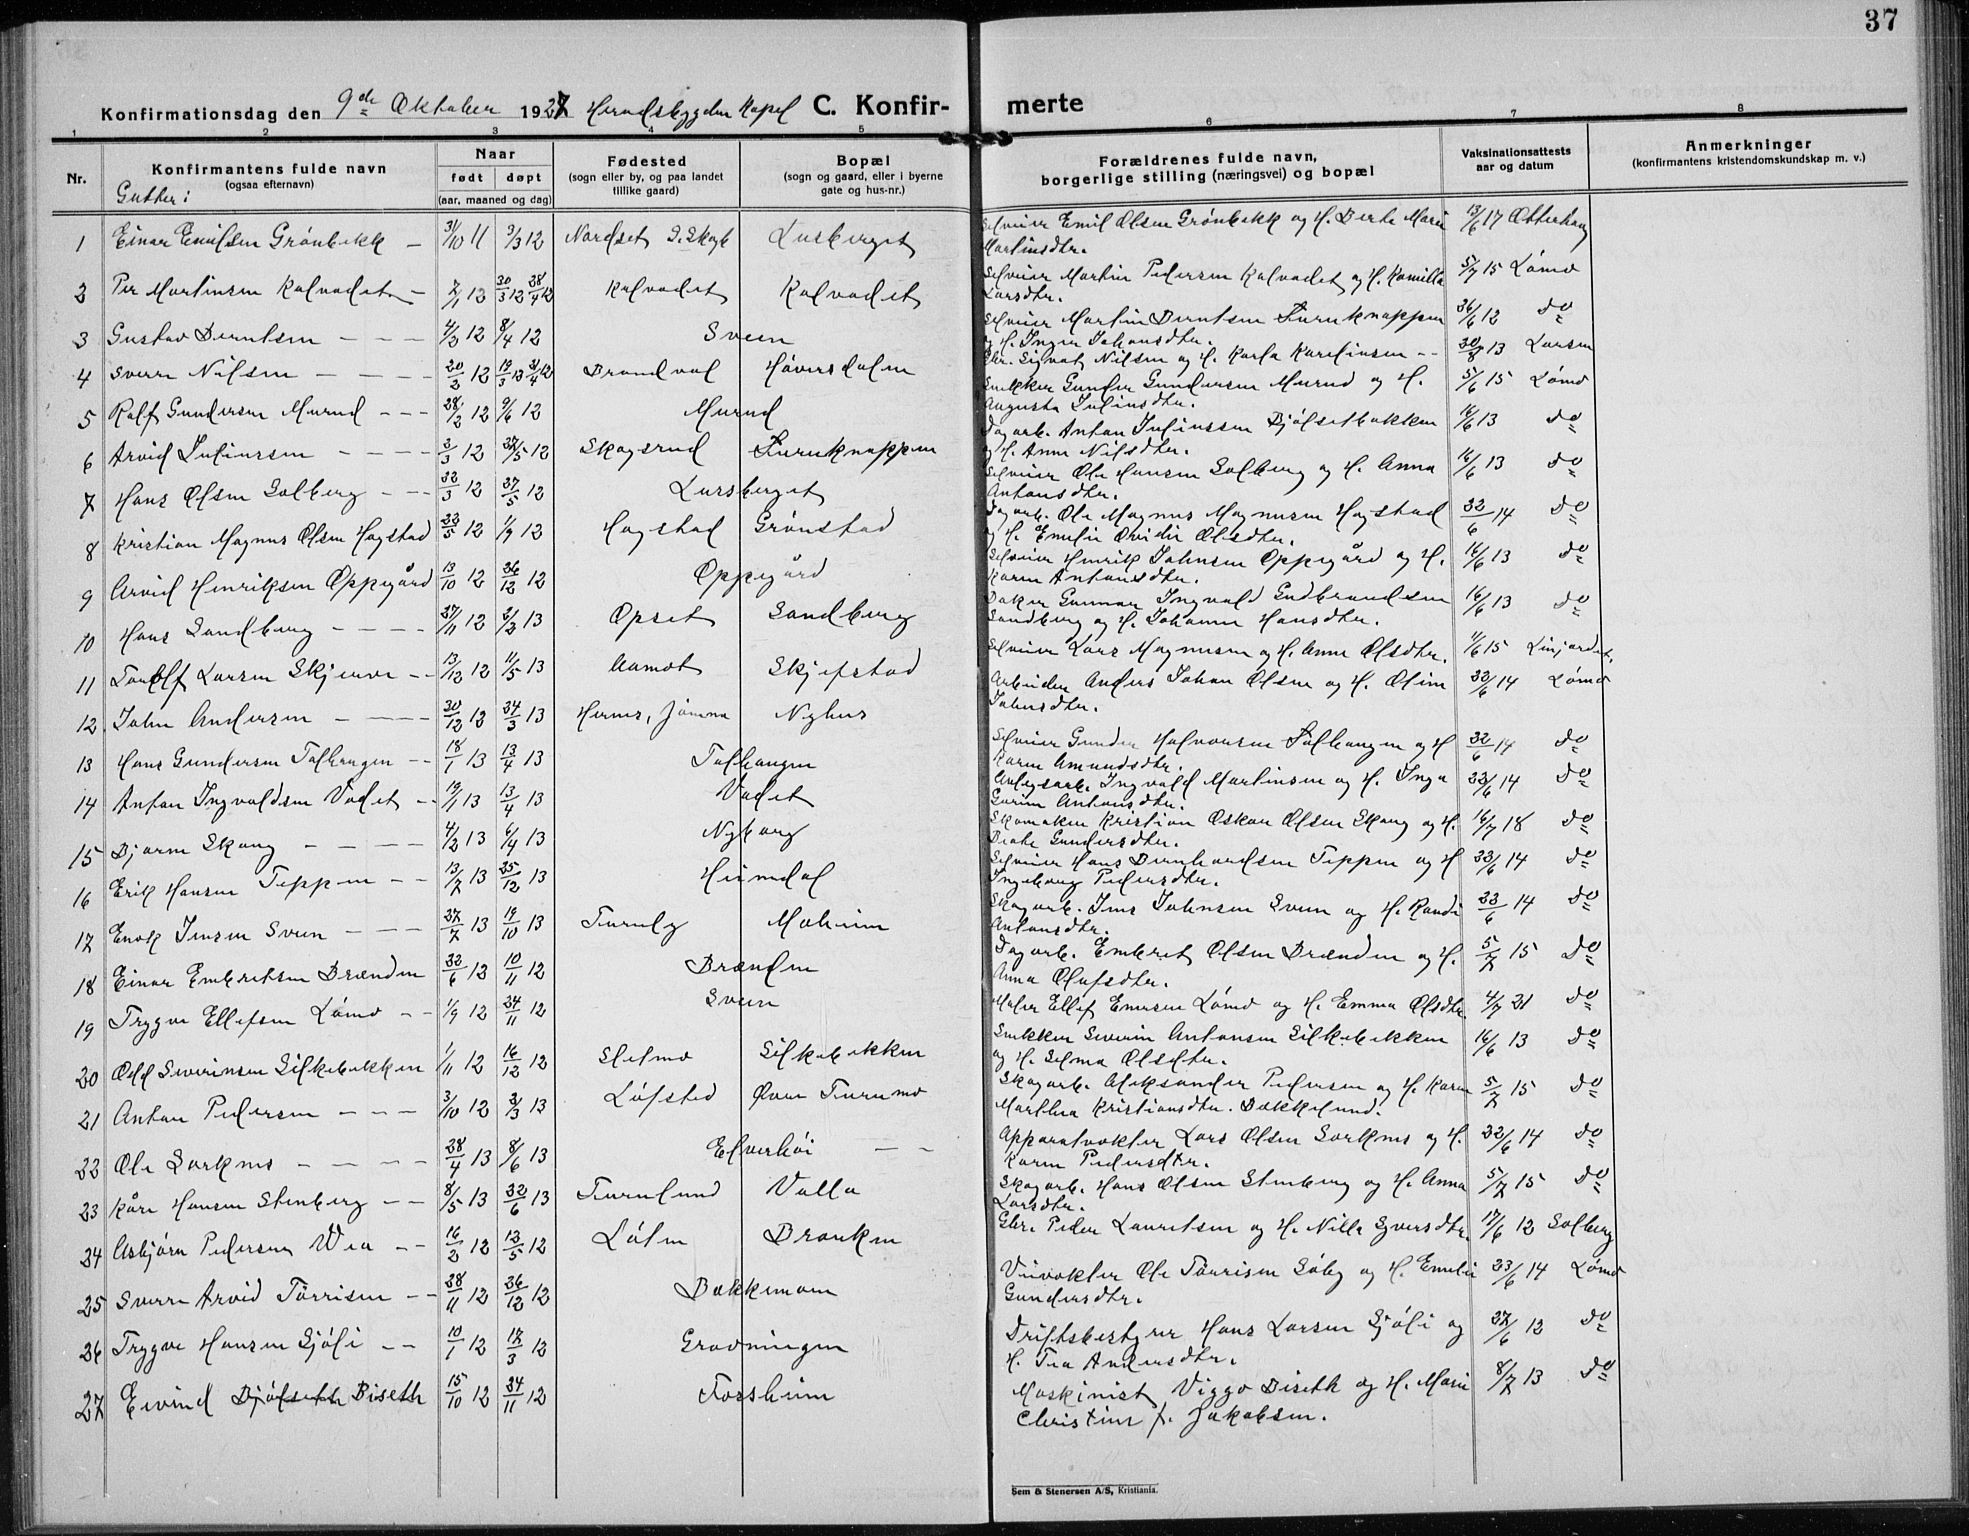 37
Konfirmationsdag den 9de Oktober 1927 Heradsbygden Kapel C. Konfir- merte
1 2 3 4 5 6 7 8
Nr. Konfirmantens fulde navn (ogsaa efternavn) Naar født døpt (aar, maaned og dag) Fødested (sogn eller by, og paa landet tillike gaard) Bopæl (sogn og gaard, eller i byerne gate og hus-nr.) Forældrenes fulde navn, borgerlige stilling (næringsvei) og bopæl Vaksinationsattests aar og datum Anmerkninger (konfirmantens kristendomskundskap m. v.)
Gutter:
1 Einar Emilsen Grönbekk – 31/10 11 3/3 12 Nordset Lusberget Selveier Emil Olsen Grönbekk og H. Berte Marie Martinsdtr. 13/6 17 Otterhaug
2 Per Martinsen Kalvadet – 7/1 12 Kalvadet Kalvadet Selveier Martin Pedersen Kalvadet og H. Kamilla Larsdtr. 5/7 15 Lömo
3 Gustav Berntsen – – – 4/2 12 8/4 12 Sveen Selveier Martin Berntsen Furuknappen og H. Inger Johansdtr. 26/6 12 do
4 Sverre Nilsen – – – – 20/2 12 Brandval Höversdalen Gbr. Sigvat Nilsen og H. Karla Karelinsen – – 30/8 13 Larsen
5 Rolf Gundersen Murud – – – 28/2 12 9/6 12 Murud Snekker Gunder Gundersen Murud og H. Augusta Juliusdtr. 5/6 15 Lömo
6 Arvid Juliussen – – – – 3/3 12 27/5 12 Skogsrud Furuknappen Dagarb. Anton Juliussen Bjölsetbakken og H. Anne Nilsdtr. 16/6 13 do
7 Hans Olsen Solberg – – – 22/3 12 27/5 12 Lursberget Selveier Ole Hansen Solberg og H. Anna Antonsdtr. 16/6 13 do
8 Kristian Magnus Olsen Hagstad 23/5 12 1/9 12 Hagstad Grönstad Dagarb. Ole Magnus Magnusen Hagstad og H. Emelie Ovidie Olsdtr. 22/6 14 do
9 Arvid Henriksen Oppegård 13/10 12 26/12 12 Oppegård Selveier Henrik Johnsen Oppegård og H. Karen Antonsdtr. 16/6 13 do
10 Hans Sandberg – – – – 27/11 12 2/2 13 Opset Sandberg Baker Gunnar Ingvald Gudbrandsen Sandberg og H. Johanne Hansdtr. 16/6 13 do
11 Toralf Larsen Skjerve – – 13/12 12 11/5 13 Aamot Skjefstad Selveier Lars Magnusen og H. Anne Olsdtr. 11/6 15 Linjordet.
12 John Andersen – – – – 30/12 12 24/3 13 Hernes, Jömna Nyhus Arbeider Anders Johan Olsen og H. Oline Johnsdtr. 22/6 14 Lömo
13 Hans Gundersen Tolhaugen – – 18/1 13 13/4 13 Tolhaugen Selveier Gunder Halvorsen Tolhaugen og H Karen Amundsdtr. 22/6 14 do
14 Anton Ingvaldsen Vadet – – 19/1 13 13/4 13 Vadet Anlegsarb. Ingvald Martinsen og H. Inga Gurine Antonsdtr. 22/6 14 do
15 Bjarne Skaug – – – – 4/2 13 6/4 13 Nyborg Skomaker Kristian Oskar Olsen Skaug og H. Beate Gundersdtr. 16/7 18 do
16 Erik Hansen Teppen – – 13/7 13 25/12 13 Heimdal Selveier Hans Bernhardsen Teppen og H Ingeborg Pedersdtr. 23/6 14 do
17 Enok Jensen Sveen – – – 27/7 13 19/10 13 Furuly Moheim Skogarb. Jens Johnsen Sveen og H. Randi Antonsdtr. 22/6 14 do
18 Einar Embretsen Brænden 22/6 12 10/11 12 Brænden Dagarb. Embret Olsen Brænden og H. Anna Olafsdtr. 5/7 15 do
19 Trygve Ellefsen Lömo – – 1/9 12 24/11 12 Sveen Maler Ellef Evensen Lömo og H. Emma Olsdtr. 4/7 21 do
20 Odd Severinsen Silkebekken 1/11 12 16/12 12 Stetmo Silkebekken Snekker Severin Antonsen Silkebekken og H. Selma Olsdtr. 16/6 13 do
21 Anton Pedersen – – – 3/10 12 2/3 13 Löfsted Över Furumo Skogarb. Aleksander Pedersen og H. Karen Marthea Kristiansdtr. Bækkelund. 5/7 15 do
22 Ole Sorknes – – – – 28/4 13 8/6 13 Elverhöi – – Apparatvokter Lars Olsen Sorknes og H. Karen Pedersdtr. 22/6 14 do
23 Kåre Hansen Stenberg – – 8/5 13 22/6 13 Furulund Valla Skogarb. Hans Olsen Stenberg og H. Anna Larsdtr. 5/7 15 do
24 Asbjörn Pedersen Wea – – 16/2 12 12/5 12 Löten Braaken Gbr. Peder Lauritsen og H. Nille Syversdtr. 17/6 12 Solberg
25 Sverre Arvid Törrisen – – 28/11 12 26/12 12 Bækkemoen Veivokter Ole Törrisen Söby og H. Emelie Gundersdtr. 23/6 14 Lömo
26 Trygve Hansen Sjöli – – 10/1 12 17/3 12 Gravningen Driftsbestyrer Hans Larsen Sjöli og H. Tea Andersdtr. 27/6 12 do
27 Eivind Bjölseth Biseth 15/10 12 24/11 12 Forsheim Maskinist Viggo Biseth og H. Marie Christine f. Jakobsen. 8/7 13 do
Sem & Stenersen A/S, Kristiania.